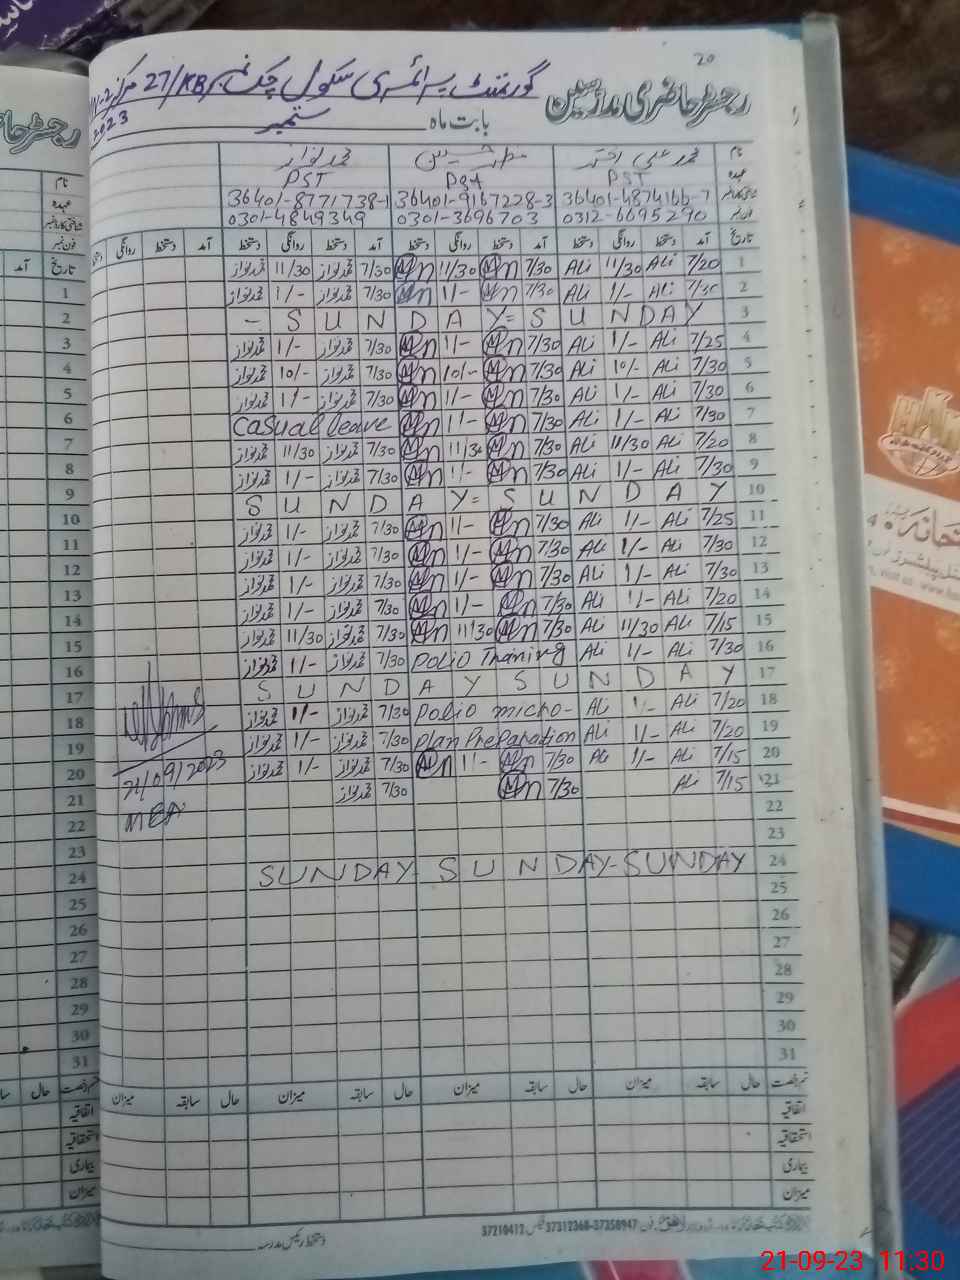 20
رجسٹر حاضری مدرسین گورنمنٹ پرائمری سکول چک نمبر 27/KB مرکز
بابت ماہ ستمبر 2023
نام محمد علی اختر محمد نواز
عہدہ PST PST PST
شناختی کارڈ نمبر 36401-4874166-7 36401-9167228-3 36401-8771738-1
فون نمبر 0312-6695290 0301-3696703 0301-4849349
تاریخ آمد دستخط روانگی دستخط آمد دستخط روانگی دستخط آمد دستخط روانگی دستخط آمد دستخط روانگی دستخط
1 7/20 Ali 11/30 Ali 7/30 11/30 7/30 محمد نواز 11/30 محمد نواز
2 7/30 Ali 1/- Ali 7/30 1/- 7/30 محمد نواز 1/- محمد نواز
3 - SUNDAY = SUNDAY
4 7/25 Ali 1/- Ali 7/30 1/- 7/30 محمد نواز 1/- محمد نواز
5 7/30 Ali 10/- Ali 7/30 10/- 7/30 محمد نواز 10/- محمد نواز
6 7/30 Ali 1/- Ali 7/30 1/- 7/30 محمد نواز 1/- محمد نواز
7 7/30 Ali 1/- Ali 7/30 1/- Casual leave
8 7/20 Ali 11/30 Ali 7/30 11/30 7/30 محمد نواز 11/30 محمد نواز
9 7/30 Ali 1/- Ali 7/30 1/- 7/30 محمد نواز 1/- محمد نواز
10 SUNDAY = SUNDAY
11 7/25 Ali 1/- Ali 7/30 1/- 7/30 محمد نواز 1/- محمد نواز
12 7/30 Ali 1/- Ali 7/30 1/- 7/30 محمد نواز 1/- محمد نواز
13 7/30 Ali 1/- Ali 7/30 1/- 7/30 محمد نواز 1/- محمد نواز
14 7/20 Ali 1/- Ali 7/30 1/- 7/30 محمد نواز 1/- محمد نواز
15 7/15 Ali 11/30 Ali 7/30 11/30 7/30 محمد نواز 11/30 محمد نواز
16 7/30 Ali 1/- Ali Polio Traning 7/30 محمد نواز 1/- محمد نواز
17 SUNDAY SUNDAY
18 7/20 Ali 1/- Ali Polio micro- 7/30 محمد نواز 1/- محمد نواز
19 7/20 Ali 1/- Ali plan Preparation 7/30 محمد نواز 1/- محمد نواز
20 7/15 Ali 1/- Ali 7/30 1/- 7/30 محمد نواز 1/- محمد نواز
21 7/15 Ali 7/30 7/30 محمد نواز
21/09/2023
MEA
22
23
24 SUNDAY - SUNDAY - SUNDAY
25
26
27
28
29
30
31
قسم رخصت حال سابقہ میزان حال سابقہ میزان حال سابقہ میزان حال سابقہ میزان
اتفاقیہ
استحقاقیہ
بیماری
میزان
37312368-37358947 37210412
دستخط رئیس مدرسہ
21-09-23 11:30